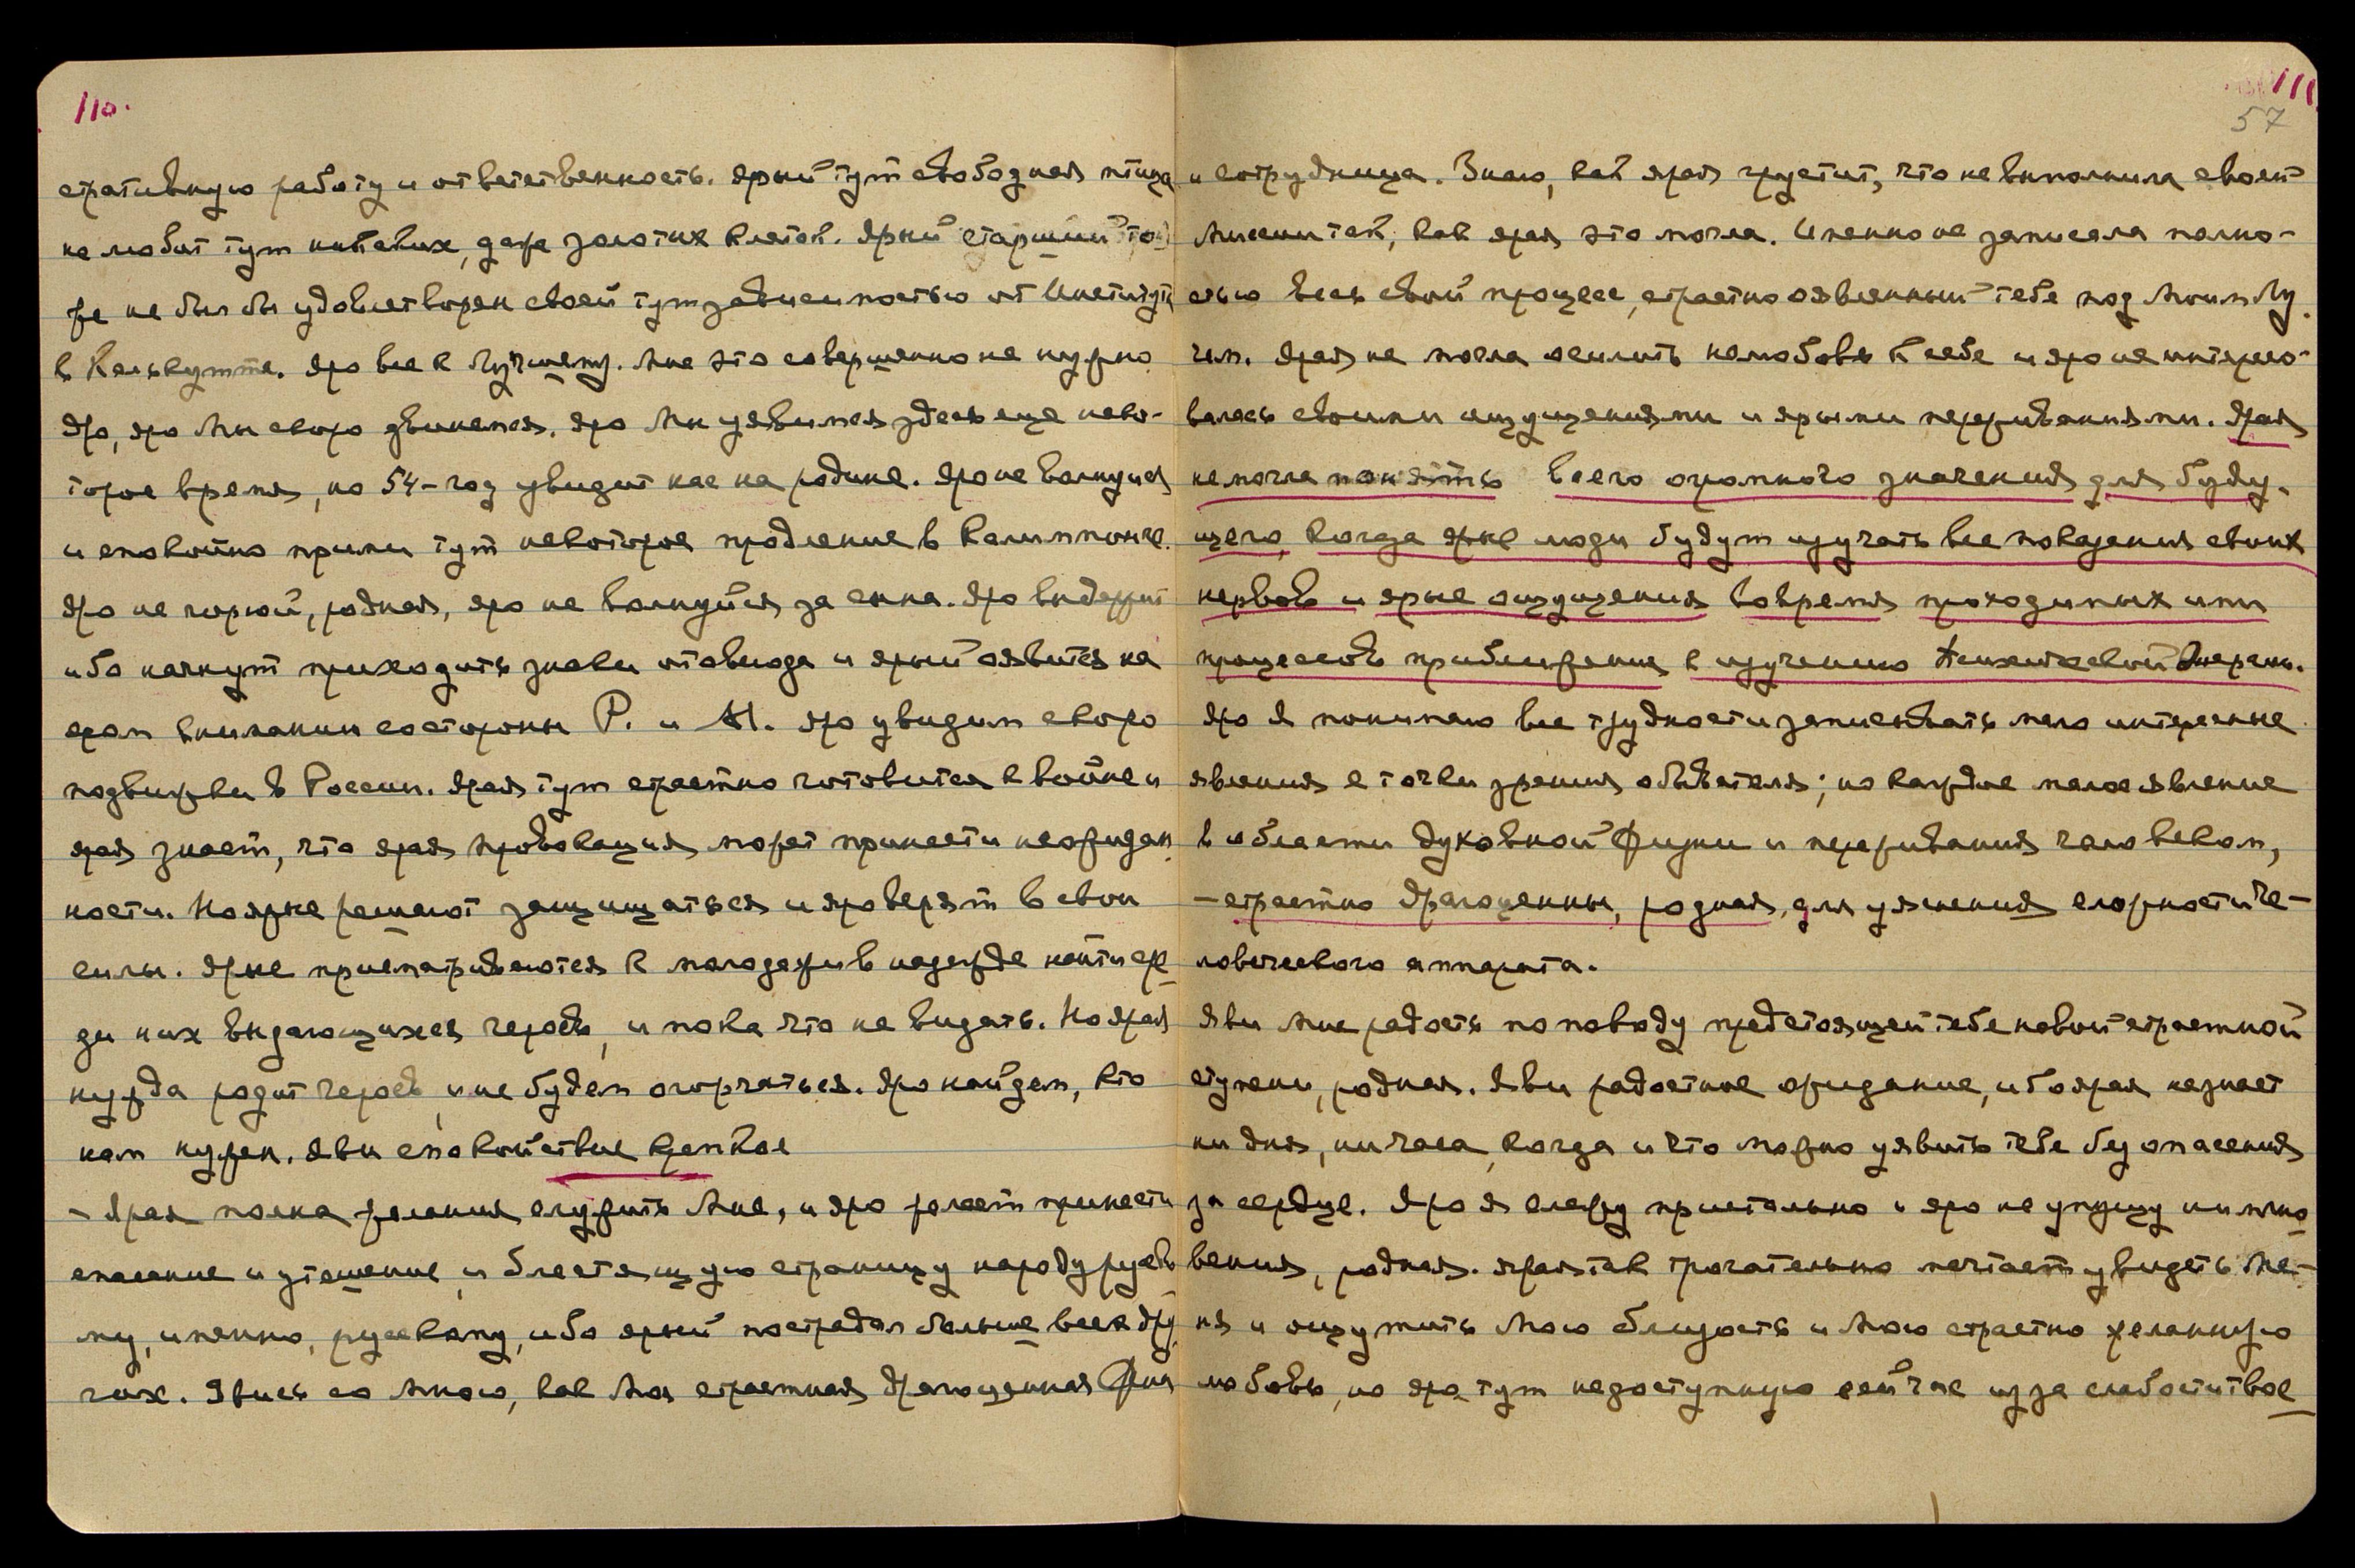 110.
стративную работу и ответственность. Ярый тут свободная птица
не любит тут никаких, даже золотых клеток. Ярый старший то-
же не был бы удовлетворен своей тут зависимостью от Института
в Калькутте. Яро все к Лучшему. Мне это совершенно не нужно
Яро, яро Мы скоро двинемся. Яро Мы уявимся здесь еще неко-
торое время, но 54-год увидит нас на родине. Яро не волнуйся
и спокойно прими тут некоторое продление в Калимпонге.
Яро не горюй, родная, яро не волнуйся за сына. Яро выдержит
ибо начнут приходить знаки отовсюду и ярый оявится на
яром внимании со стороны Р. и М. Яро увидим скоро
подвижки в России. Ярая тут страстно готовится к войне и
ярая знает, что ярая провокация может принести неожидан
ности. Но ярые решают защищаться и яро верят в свои
силы. Ярые присматриваются к молодежи в надежде найти ср
ди них выдающихся героев, и пока что не видать. Но ярая
нужда родит героев, и не будем огорчаться. Яро найдем, кто
нам нужен. Яви спокойствие крепкое
– Ярая полна желания служить Мне, и яро желает принести
спасение и утешение, и блестящую страницу народу русск
му, именно, русскому, ибо ярый пострадал больше всех дру
гих. Явись со Мною, как Моя страстная драгоценная Жена
111
57
и сотрудница. Знаю, как ярая грустит, что не выполнила своей
Миссии так, как ярая это могла. Именно не записала полно-
стью весь свой процесс, страстно оявленный тебе под Моим Лу
чем. Ярая не могла осилить нелюбовь к себе и яро не интересо-
валась своими ощущениями и ярыми переживаниями. Ярая
не могла понять всего огромного значения для буду-
щего, когда ярые люди будут изучать все показания своих
нервов и ярые ощущения во время проходимых ими
процессов приближения к изучению Психической Энергии.
Яро Я понимаю все трудности записывать мало интересные
явления с точки зрения обывателя; но каждое малое явление
в области духовной Жизни и переживания человеком,
– страстно драгоценны, родная, для уяснения сложности че-
ловеческого аппарата.
Яви Мне радость по поводу предстоящей тебе новой страстной
ступени, родная. Яви радостное ожидание, ибо ярая не знает
ни дня, ни часа, когда и что можно уявить тебе без опасения
за сердце. Яро Я слежу пристально и яро не упущу ни мгно
вения, родная. Ярая так трогательно мечтает увидеть Ме-
ня и ощутить Мою близость и Мою страстно желанную
любовь, но яро тут недоступную сейчас из за слабости твое